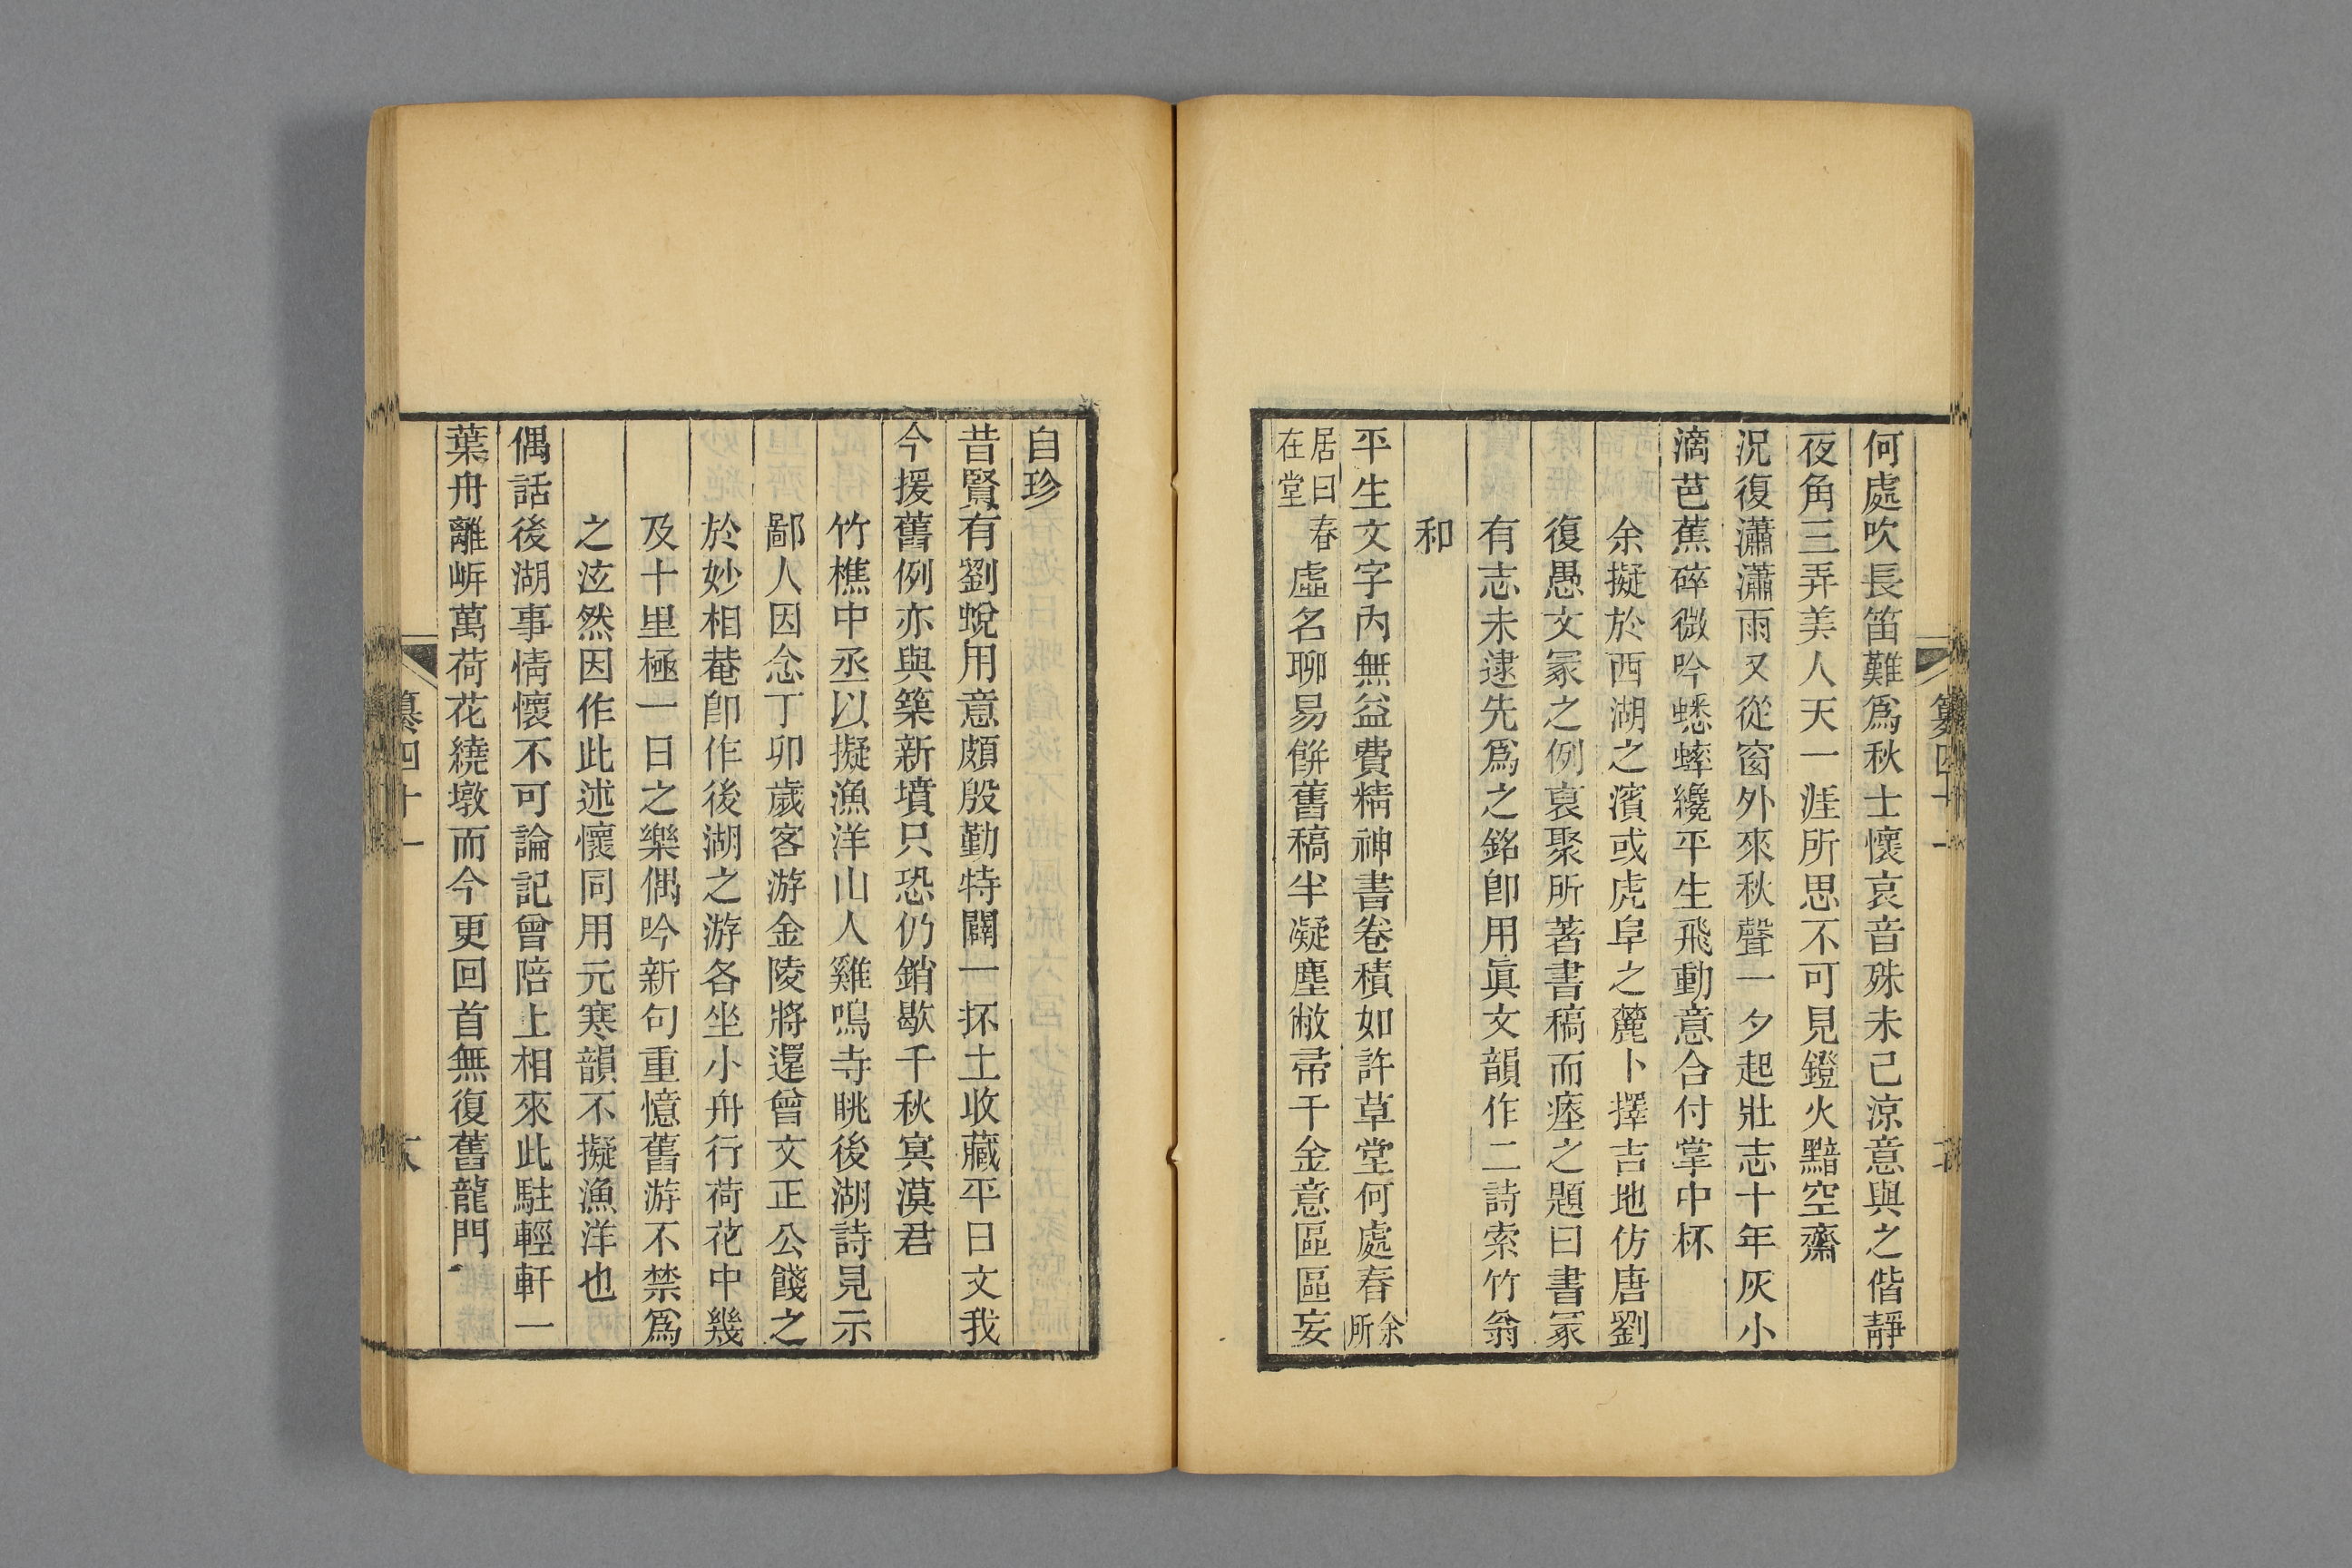 何處吹長笛難爲秋士懷哀音殊未已涼意與之偕靜
夜角三弄美人天一涯所思不可見鐙火黯空齋
況復瀟瀟雨又從窗外來秋聲一夕起壯志十年灰小
滴芭蕉碎微吟蟋蟀纔平生飛動意合付掌中杯
余擬於西湖之濱或虎阜之麓卜擇吉地仿唐劉
復愚文冢之例裒聚所著書稿而瘞之題曰書冢
有志未逮先爲之銘卽用眞文韻作二詩索竹翁
和
平生文字內無益費精神書卷積如許草堂何處春余所
居曰春在堂虛名聊易餅舊稿半凝塵敝帚千金意區區妄
自珍
昔賢有劉蛻用意頗殷勤特闢一抔土收藏平日文我
今援舊例亦與築新墳只恐仍銷歇千秋寞漠君
竹樵中丞以擬漁洋山人雞鳴寺眺後湖詩見示
鄙人因念丁卯歲客游金陵將還曾文正公餞之
於妙相菴卽作後湖之游各坐小舟行荷花中幾
及十里極一日之樂偶吟新句重憶舊游不禁爲
之泫然因作此述懷同用元寒韻不擬漁洋也
偶話後湖事情懷不可論記曾陪上相來此駐輕軒一
葉舟離岍萬荷花繞墩而今更回首無復舊龍門